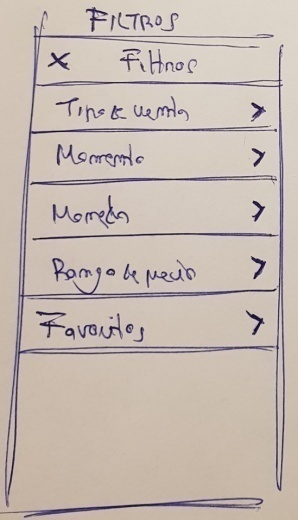 FILTROS
X Filtros
Tipo de venta >
Momento >
Moneda >
Rango de precio >
Favoritos >